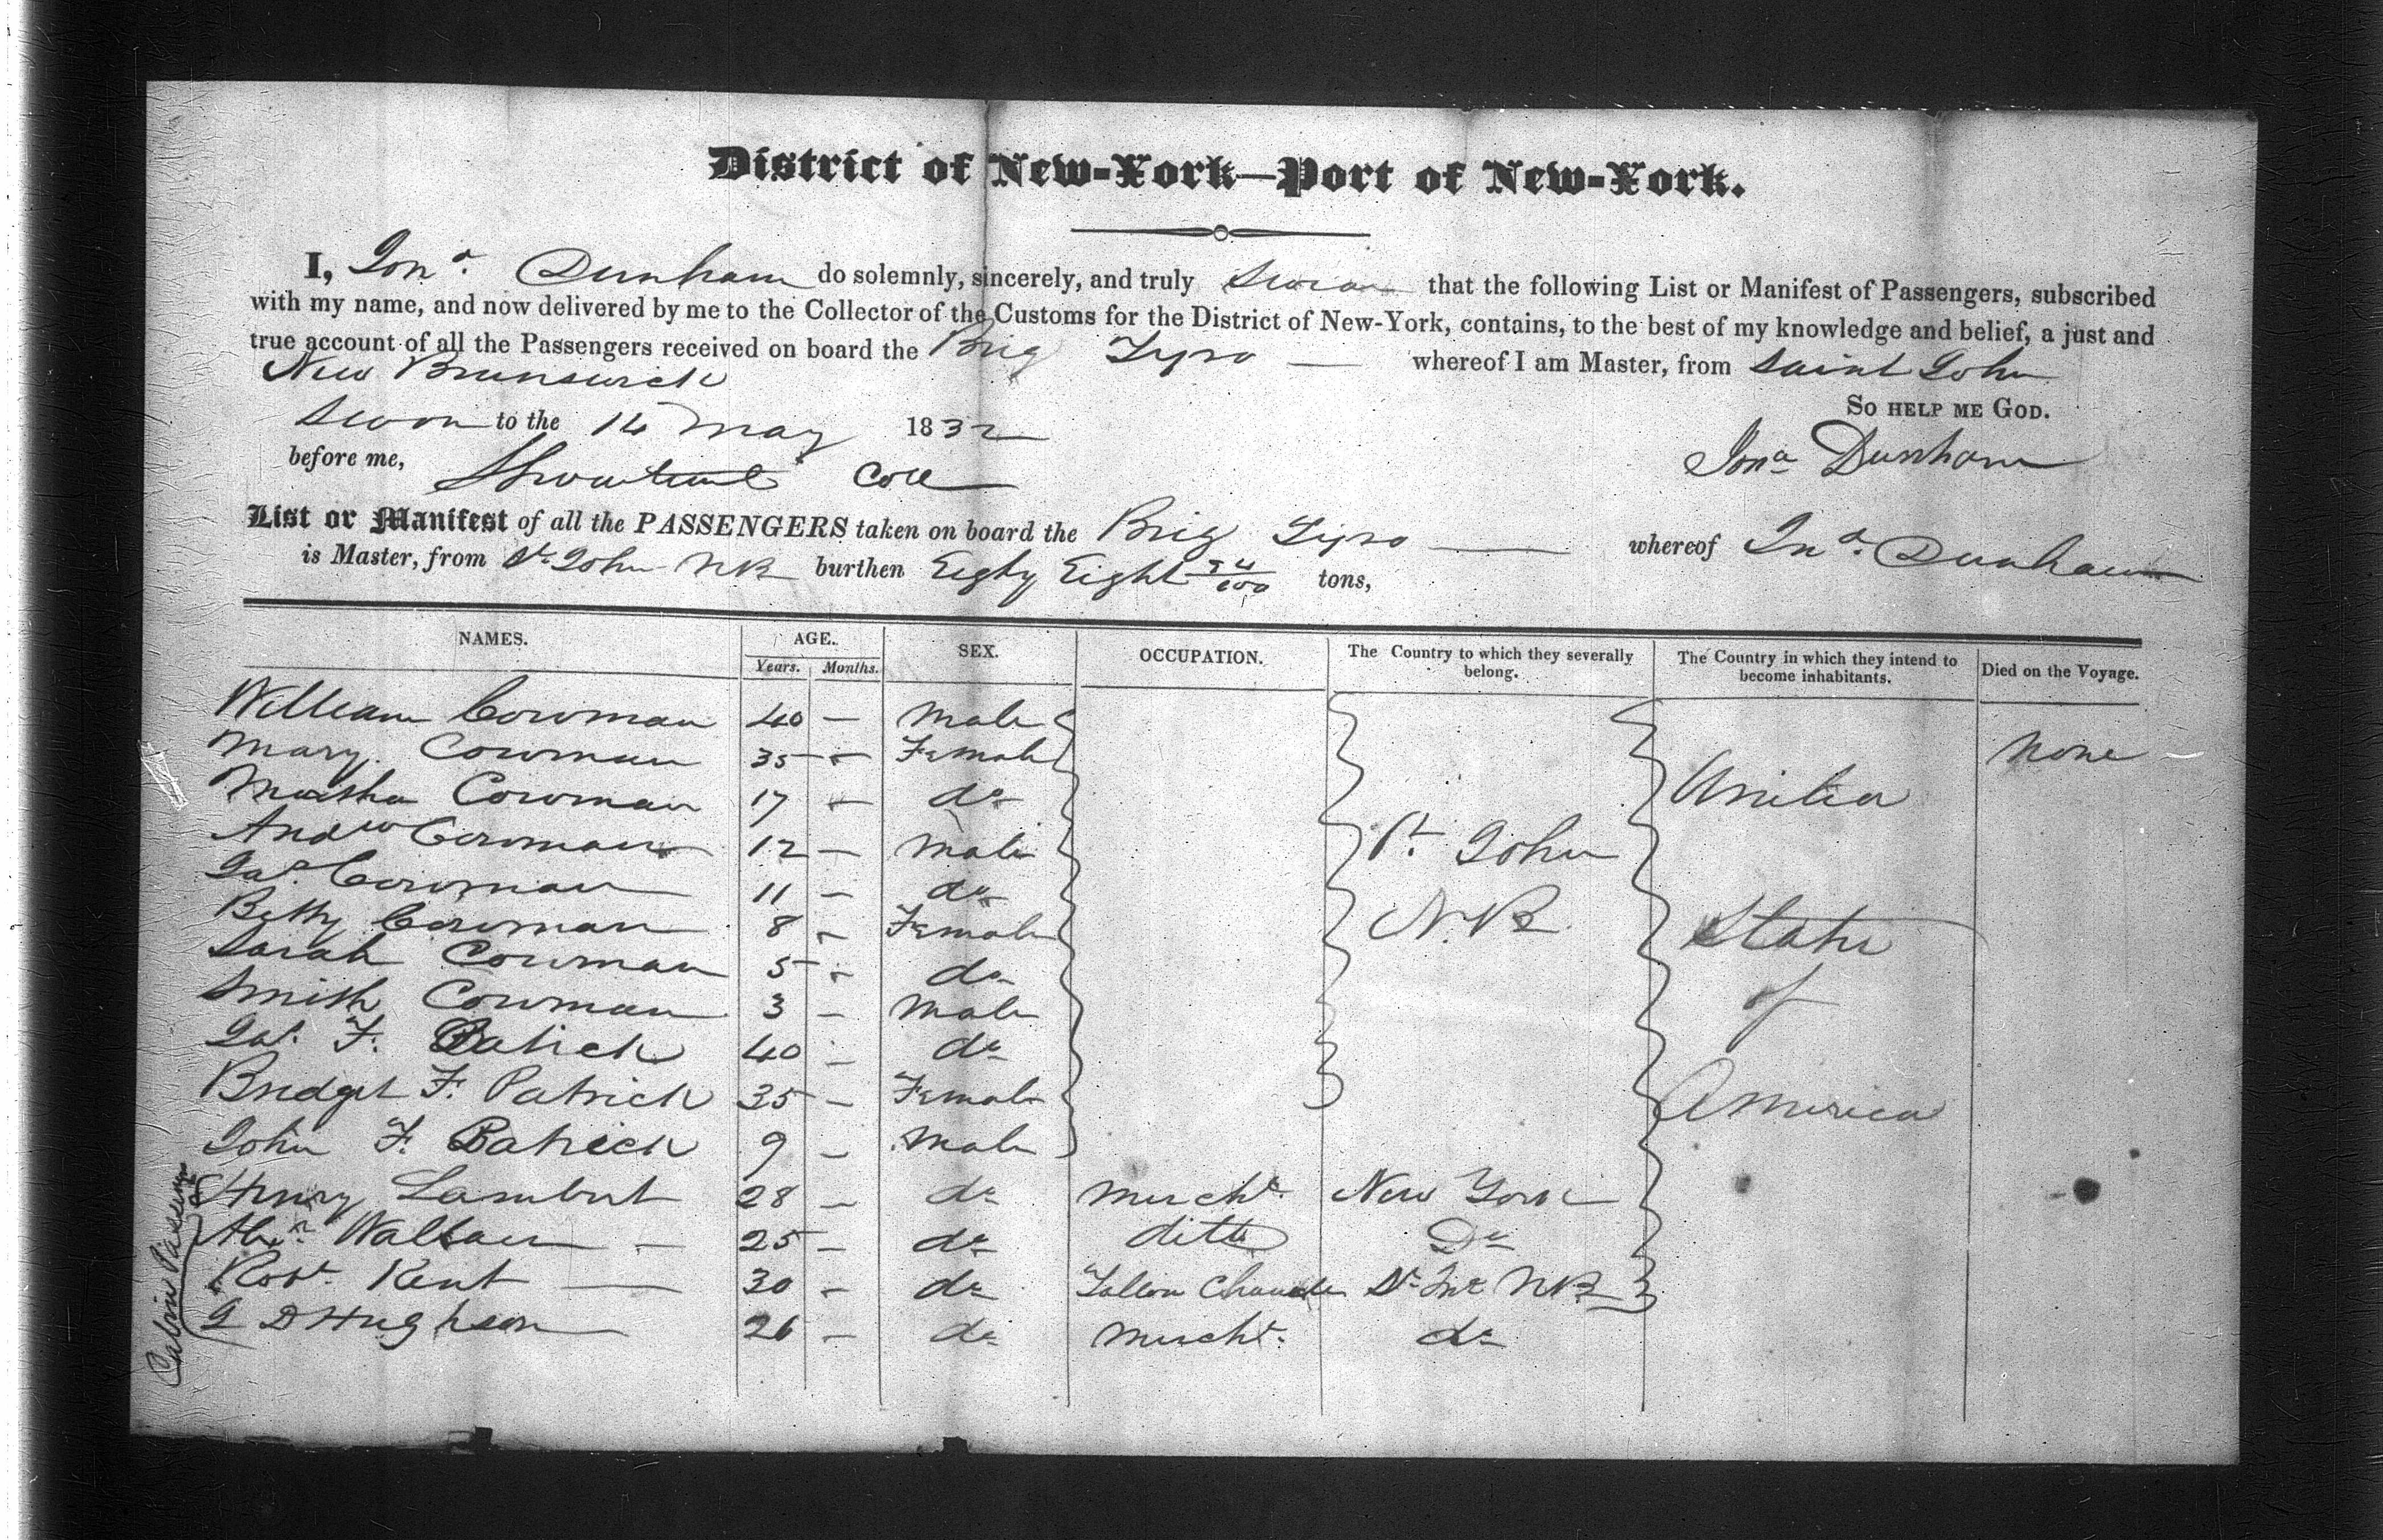 District of New-York—Port of New-York.
I, Jona. Dunham do solemnly, sincerely, and truly swear that the following List or Manifest of Passengers, subscribed
with my name, and now delivered by me to the Collector of the Customs for the District of New-York, contains, to the best of my knowledge and belief, a just and
true account of all the Passengers received on board the Brig Tyro — whereof I am Master, from Saint John
New Brunswick
So HELP ME GOD.
Sworn to the 14 May 1832
Jona Dunham
before me, Coll
List or Manifest of all the PASSENGERS taken on board the Brig Tyro — whereof Jna. Dunham
is Master, from St. John NB burthen Eighty Eight 94/100 tons,
NAMES. AGE. SEX. OCCUPATION. The Country to which they severally belong. The Country in which they intend to become inhabitants. Died on the Voyage.
Years. Months.
William Cowman 40 — Male
Mary Cowman 35 — Female None
Martha Cowman 17 — do United
Andw Cowman 12 — Male St. John
Jas. Cowman 11 — do
Betty Cowman 8 — Female N.B. States
Sarah Cowman 5 — do
Smith Cowman 3 — Male of
Jas. F. Patrick 40 — do
Bridget F. Patrick 35 — Female America
John F. Patrick 9 — Male
Henry Lambert 28 — do Mercht. New York
Alexr. Wallace — 25 — do ditto Do
Robt. Kent — 30 — do Tallow Chandler St. Jno NB
J D Hughson 26 — do Mercht. do
Cabin Passengers